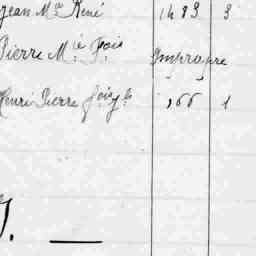 Jean M.ie René 1483 3
Pierre M.ie Fois Impropre
Henri Pierre 166 1
J. —